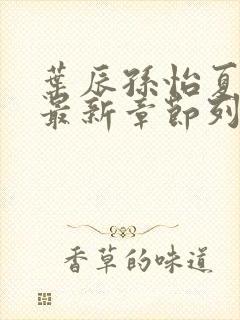 葉辰孫怡夏
最新章節列
香草的味道